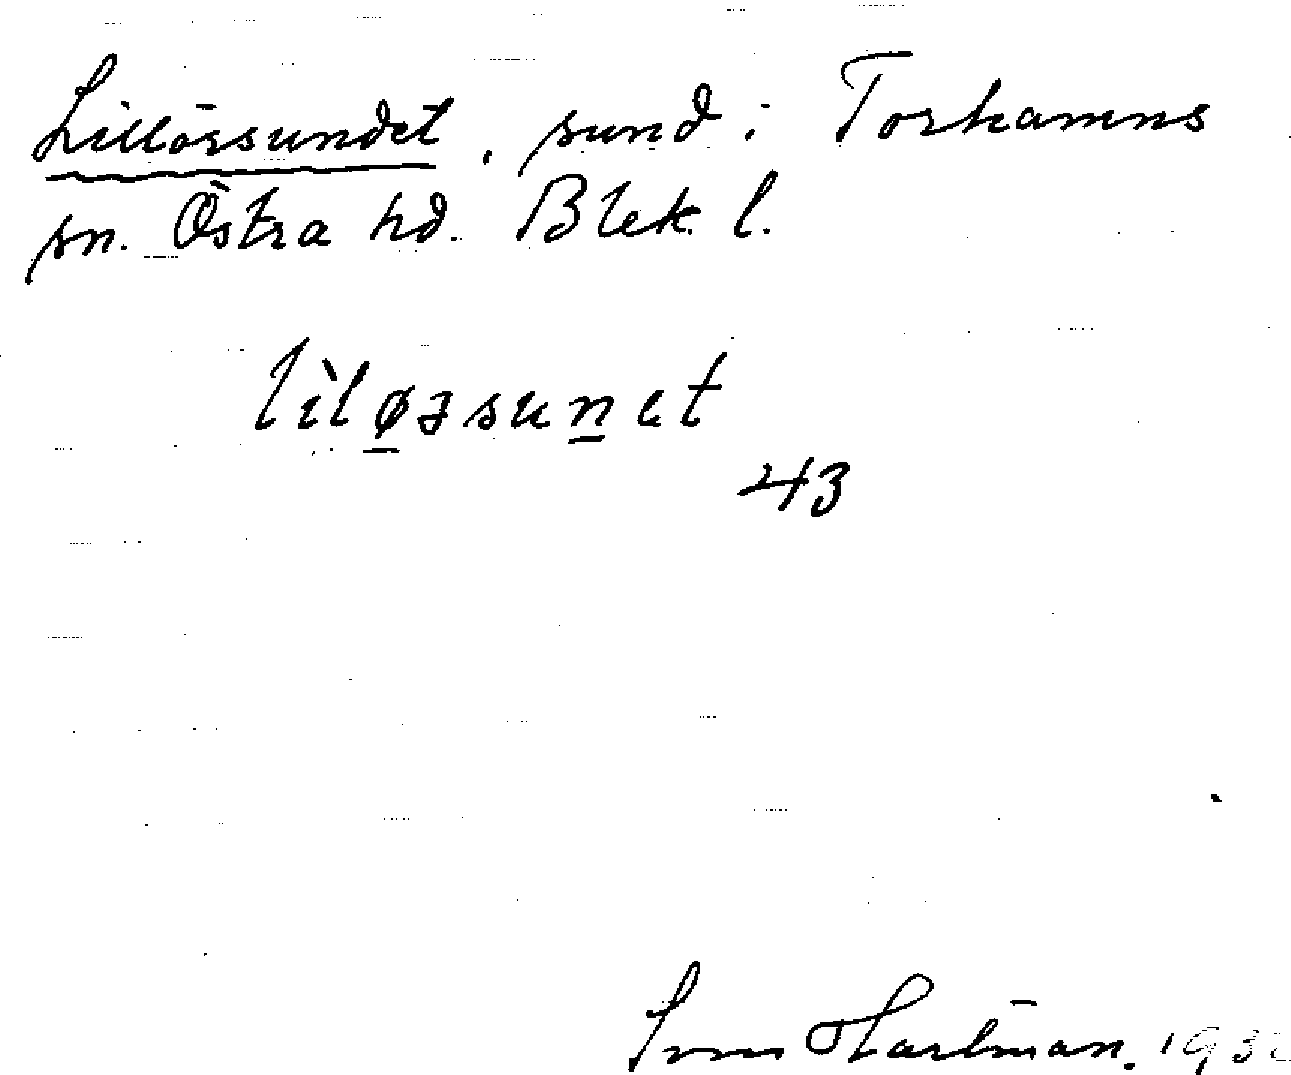 Lillörsundet, sund i Torhamns
sn. Östra hd. Blek. l.
lìløɜsunet
43
Hartman. 193